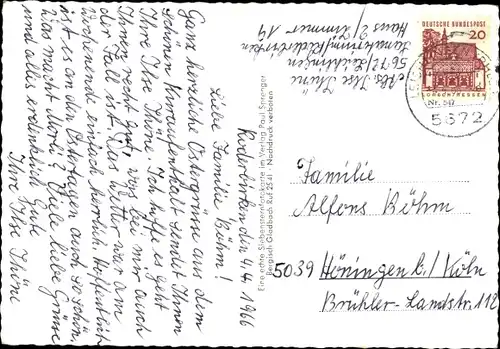 Abs. Ilse Thüne
567 Leichlingen
Sanatorium Roderbirken
Haus 2/Zimmer 14
Roderbirken, den 4.4.1966
Liebe Familie Böhm!
Ganz herzliche Ostergrüsse aus dem
schönen Kuraufenthalt sendet Ihnen
Ihre Ilse Thüne. Ich hoffe es geht
Ihnen recht gut, was bei mir auch
der Fall ist. Das Wetter war am
Wochenende einfach herrlich. Hoffentlich
ist es an den Ostertagen auch so schön.
Was macht Viele liebe Grüsse
und alles erdenklich Gute
Ihre Ilse Thüne
Eine echte Siebensternfotokarte im Verlag Paul Sprenger
Bergisch Gladbach Ruf 2541 · Nachdruck verboten
DEUTSCHE BUNDESPOST
20
LORSCH/HESSEN
5672
Familie
Alfons Böhm
5039 Höningen b./Köln
Brühler-Landstr. 112